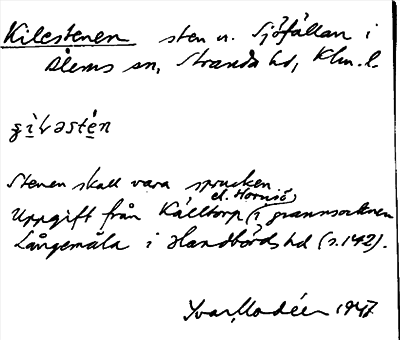 Kilestenen sten n. Sjöfällan i
Ålems sn, Stranda hd, Klm. l.
Stenen skall vara sprucken.
el. Hornsö
Uppgift från Källtorp (i grannsocknen
Långemåla i Handbörds hd (s.142).
Ivar Modéer 1947